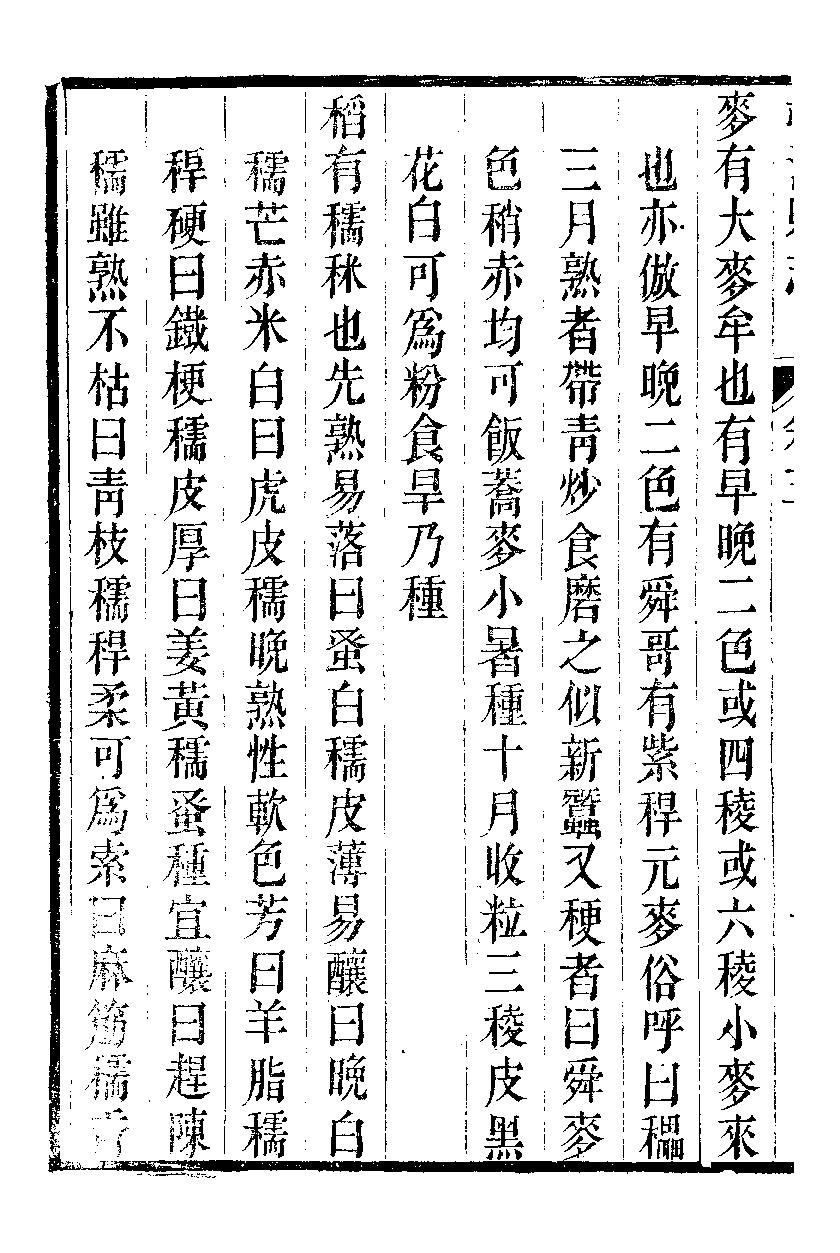 麥有大麥牟也有早晚二色或四稜或六稜小麥來
也亦倣早晚二色有舜哥有紫稈元麥俗呼曰䆉
三月熟者帶靑炒食磨之似新蠶又稉者曰舜麥
色稍赤均可飯蕎麥小暑種十月收粒三稜皮黑
花白可爲粉食旱乃種
稻有穤秫也先熟易落曰蚤白穤皮薄易釀曰晚白
穤芒赤米白曰虎皮穤晚熟性軟色芳曰羊脂穤
稈硬曰鐵梗穤皮厚曰姜黃穤蚤種宜釀曰趕陳
穤雖熟不枯曰靑枝穤稈柔可爲索曰麻筋穤